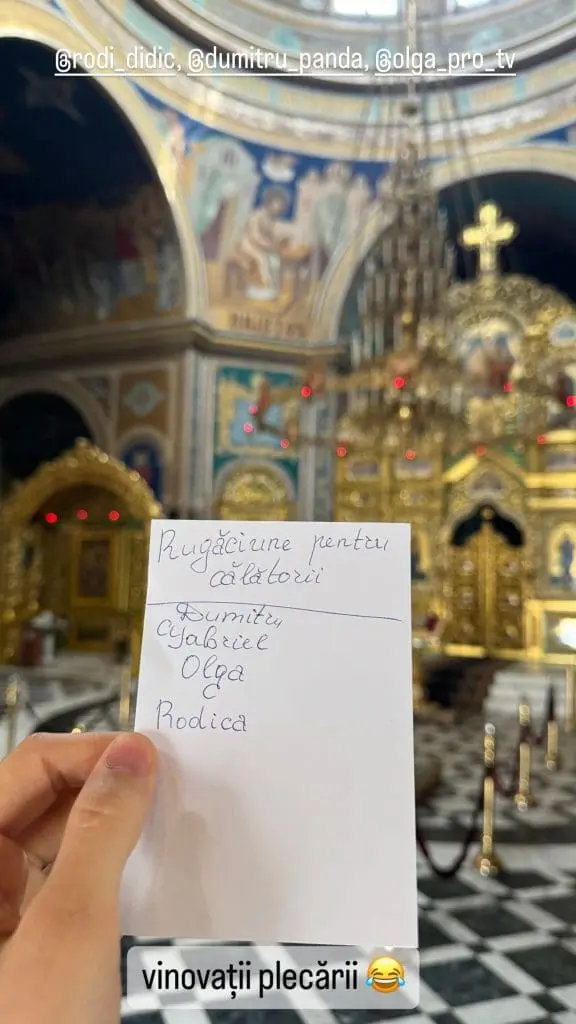 @rodi_didic, @dumitru_panda, @olga_pro_tv
Rugăciune pentru
călătorii
Dumitru
Gabriel
Olga
C
Rodica
vinovații plecării 😂